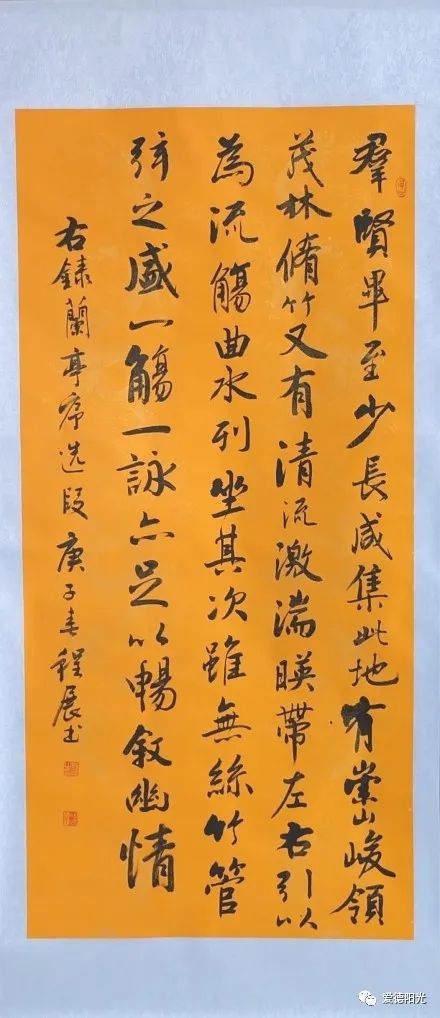 羣賢畢至少長咸集此地有崇山峻領
茂林脩竹又有清流激湍暎帶左右引以
為流觴曲水列坐其次雖無絲竹管
弦之盛一觴一詠亦足以暢敘幽情
右録蘭亭序选段庚子春程展书
爱德阳光